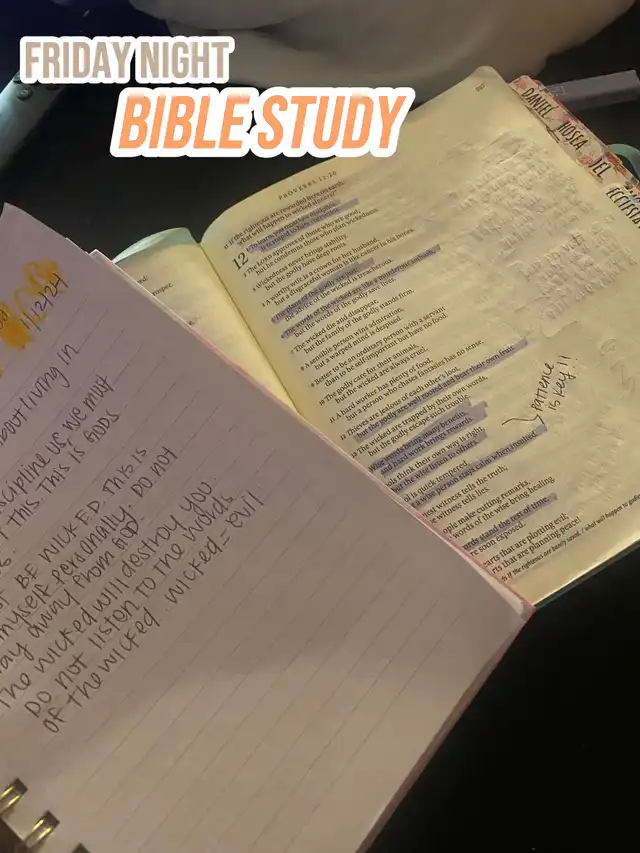 FRIDAY NIGHT
BIBLE STUDY
PROVERBS 12:20
31 If the righteous are rewarded here on earth,
what will happen to wicked sinners?
12
1 To learn, you must love discipline;
it is stupid to hate correction.
2 The LORD approves of those who are good,
but he condemns those who plan wickedness.
3 Wickedness never brings stability,
but the godly have deep roots.
4 A worthy wife is a crown for her husband,
but a disgraceful woman is like cancer in his bones.
5 The plans of the godly are just;
the advice of the wicked is treacherous.
6 The words of the wicked are like a murderous ambush,
but the words of the godly save lives.
7 The wicked die and disappear,
but the family of the godly stands firm.
8 A sensible person wins admiration,
but a warped mind is despised.
9 Better to be an ordinary person with a servant
than to be self-important but have no food.
10 The godly care for their animals,
but the wicked are always cruel.
11 A hard worker has plenty of food,
but a person who chases fantasies has no sense.
12 Thieves are jealous of each other's loot,
but the godly are well rooted and bear their own fruit.
13 The wicked are trapped by their own words,
but the godly escape such trouble.
Wise words bring many benefits,
and hard work brings rewards.
ools think their own way is right,
but the wise listen to others.
ol is quick-tempered,
a wise person stays calm when insulted.
est witness tells the truth;
e witness tells lies.
ople make cutting remarks,
words of the wise bring healing.
ords stand the test of time,
re soon exposed.
earts that are plotting evil;
rts that are planning peace!
patience
is key!!
DANIEL
HOSEA
JOEL
11/12/24
about living in
scipline us, we must
t this. This is GODS
BE WICKED. THIS IS
myself personally. DO NOT
ay away from GOD.
The wicked will destroy you.
DO not listen to the words
of the wicked. wicked = evil